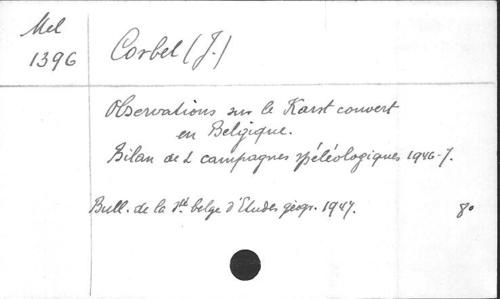 Mel
1396
Corbel (J.)
Observations sur le Karst couvert
en Belgique.
Bilan de 2 campagnes spéléologiques 1946-7.
Bull. de la Sté belge d'Etudes géogr. 1947. 8°